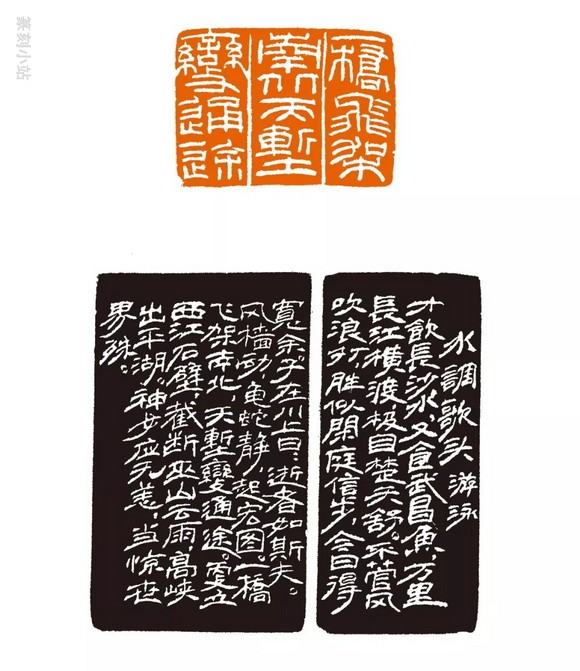 篆刻小站
一橋飛架
南北天塹
變通途
水調歌头 游泳
才飲長沙水,又食武昌魚。万里
長江横渡,极目楚天舒。不管风
吹浪打,胜似閑庭信步,今日得
寬余。子在川上曰:逝者如斯夫。
风樯动,龟蛇静,起宏图。一橋
飞架南北,天塹變通途。更立
西江石壁,截断巫山云雨,高峡
出平湖。神女应无恙,当惊世
界殊。